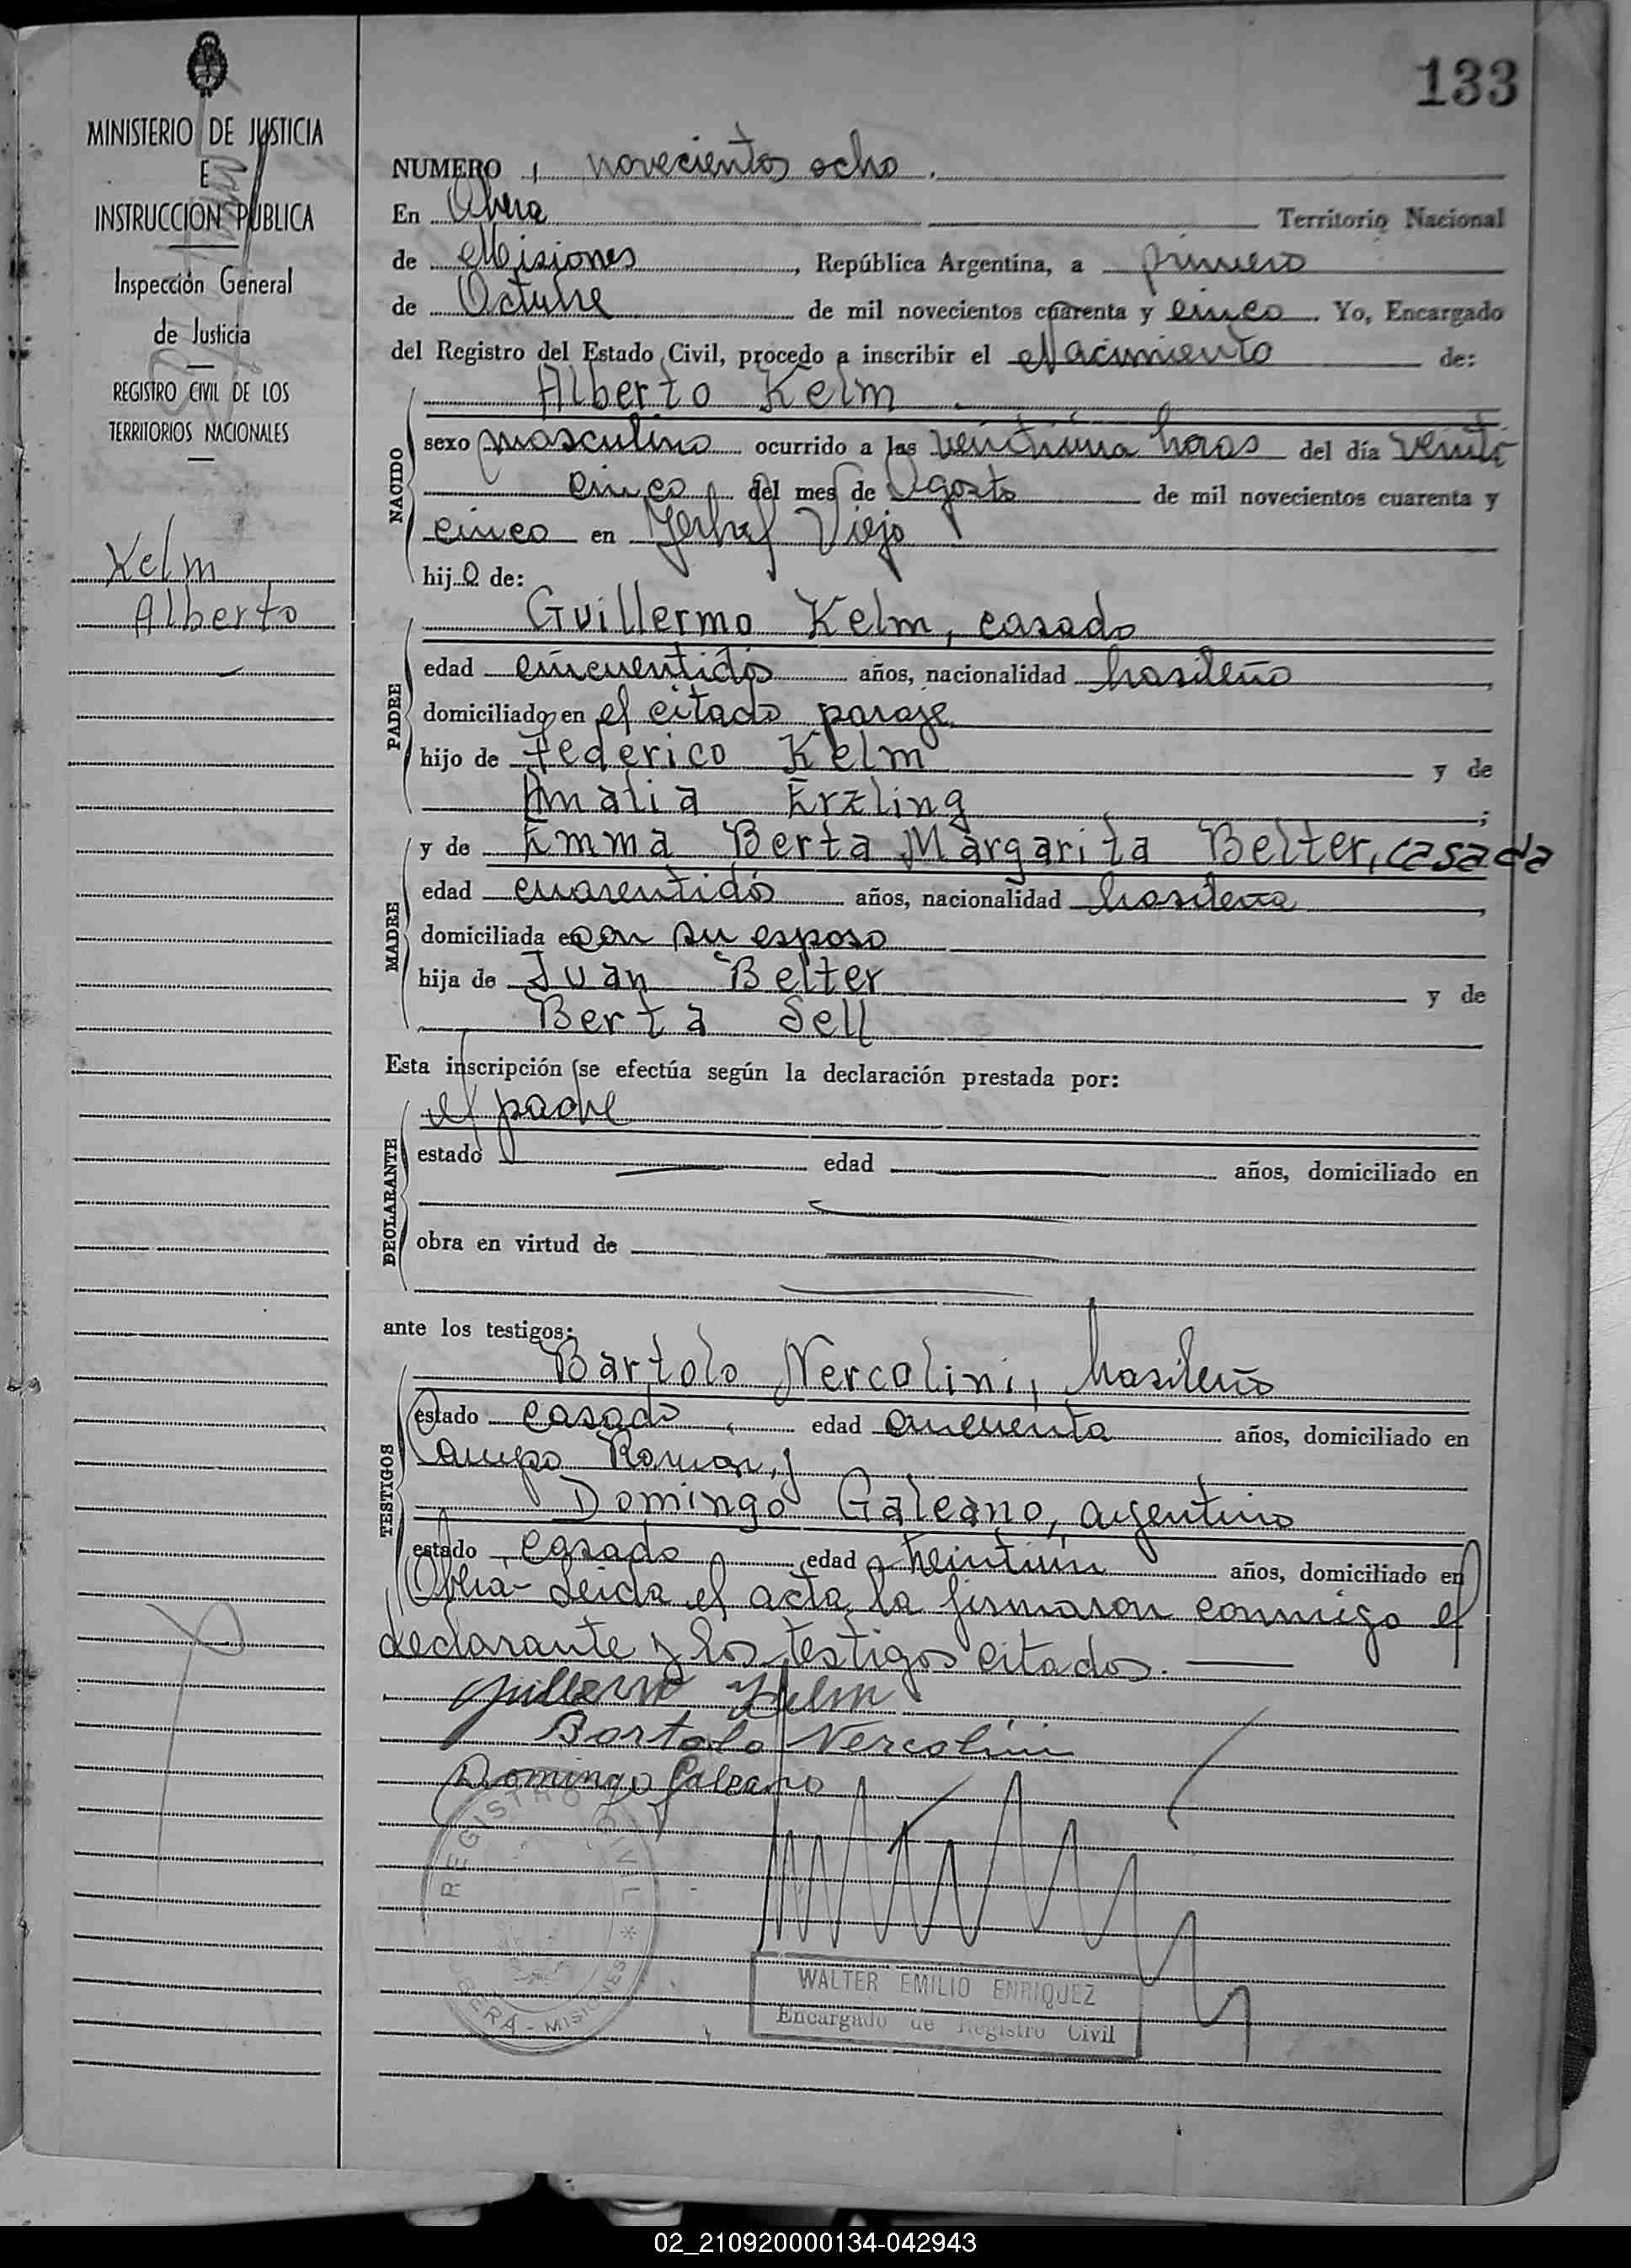 133
MINISTERIO DE JUSTICIA
E
INSTRUCCION PUBLICA
Inspección General
de Justicia
REGISTRO CIVIL DE LOS
TERRITORIOS NACIONALES
Kelm
Alberto
NUMERO novecientos ocho.
En Oberá Territorio Nacional
de Misiones, República Argentina, a primero
de Octubre de mil novecientos cuarenta y cinco. Yo, Encargado
del Registro del Estado Civil, procedo a inscribir el Nacimiento de:
NACIDO
Alberto Kelm
sexo masculino ocurrido a las veintiuna horas del día veinti
cinco del mes de Agosto de mil novecientos cuarenta y
cinco en Yerbal Viejo
hijo de:
PADRE
Guillermo Kelm, casado
edad cincuentidós años, nacionalidad brasileño,
domiciliado en el citado paraje
hijo de Federico Kelm y de
Amalia Erzling;
MADRE
y de Emma Berta Margarita Belter, casada
edad cuarentidós años, nacionalidad brasileña,
domiciliada en con su esposo
hija de Juan Belter y de
Berta Sell
Esta inscripción se efectúa según la declaración prestada por:
DECLARANTE
el padre
estado edad años, domiciliado en
obra en virtud de
ante los testigos:
TESTIGOS
Bartolo Nercolini, brasileño
estado casado, edad cincuenta años, domiciliado en
Campo Ramon, y
Domingo Galeano, argentino
estado casado edad treintiún años, domiciliado en
Oberá- Leida el acta, la firmaron conmigo el
declarante y los testigos citados.
Guillermo Kelm
Bartolo Nercolini
Domingo Galeano
REGISTRO CIVIL * OBERÁ - MISIONES
WALTER EMILIO ENRIQUEZ
Encargado de Registro Civil
02_210920000134-042943